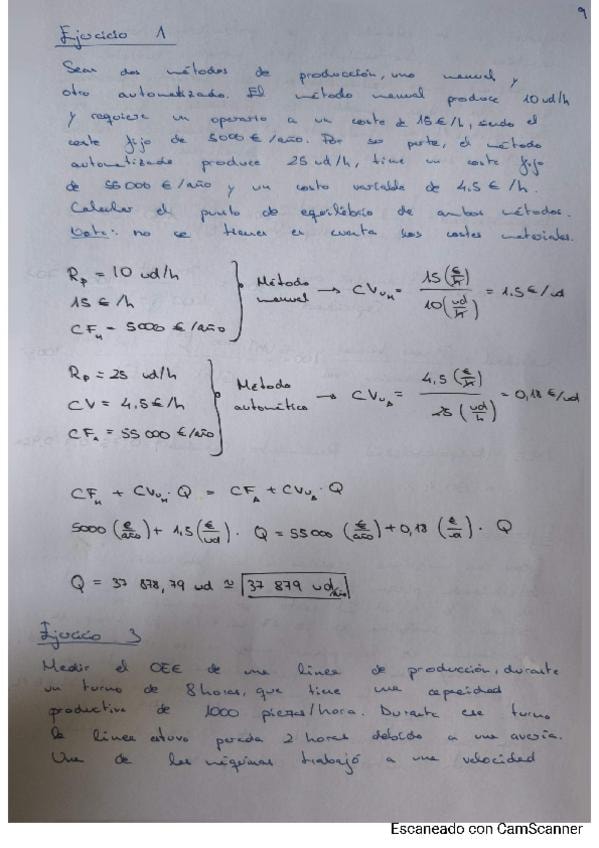 9
Ejercicio 1
Sean dos métodos de producción, uno manual y
otro automatizado. El método manual produce 10 ud/h
y requiere un operario a un coste de 15 €/h, siendo el
coste fijo de 5000 €/año. Por su parte, el método
automatizado produce 25 ud/h, tiene un coste fijo
de 55 000 €/año y un costo variable de 4.5 €/h.
Calcular el punto de equilibrio de ambos métodos.
Nota: no se tienen en cuenta los costes materiales.
Rp = 10 ud/h
15 €/h
CF_M = 5000 €/año
Método manual → CVu_M = 15 (€/h) / 10 (ud/h) = 1.5 €/ud
Rp = 25 ud/h
CV = 4,5 €/h
CF_A = 55 000 €/año
Método automático → CVu_A = 4,5 (€/h) / 25 (ud/h) = 0,18 €/ud
CF_M + CVu_M · Q = CF_A + CVu_A · Q
5000 (€/año) + 1,5 (€/ud) · Q = 55000 (€/año) + 0,18 (€/ud) · Q
Q = 37 878,79 ud ≅ 37 879 ud/año
Ejercicio 3
Medir el OEE de una línea de producción, durante
un turno de 8 horas, que tiene una capacidad
productiva de 1000 piezas/hora. Durante ese turno
la línea estuvo parada 2 horas debido a una avería.
Una de las máquinas trabajó a una velocidad
Escaneado con CamScanner